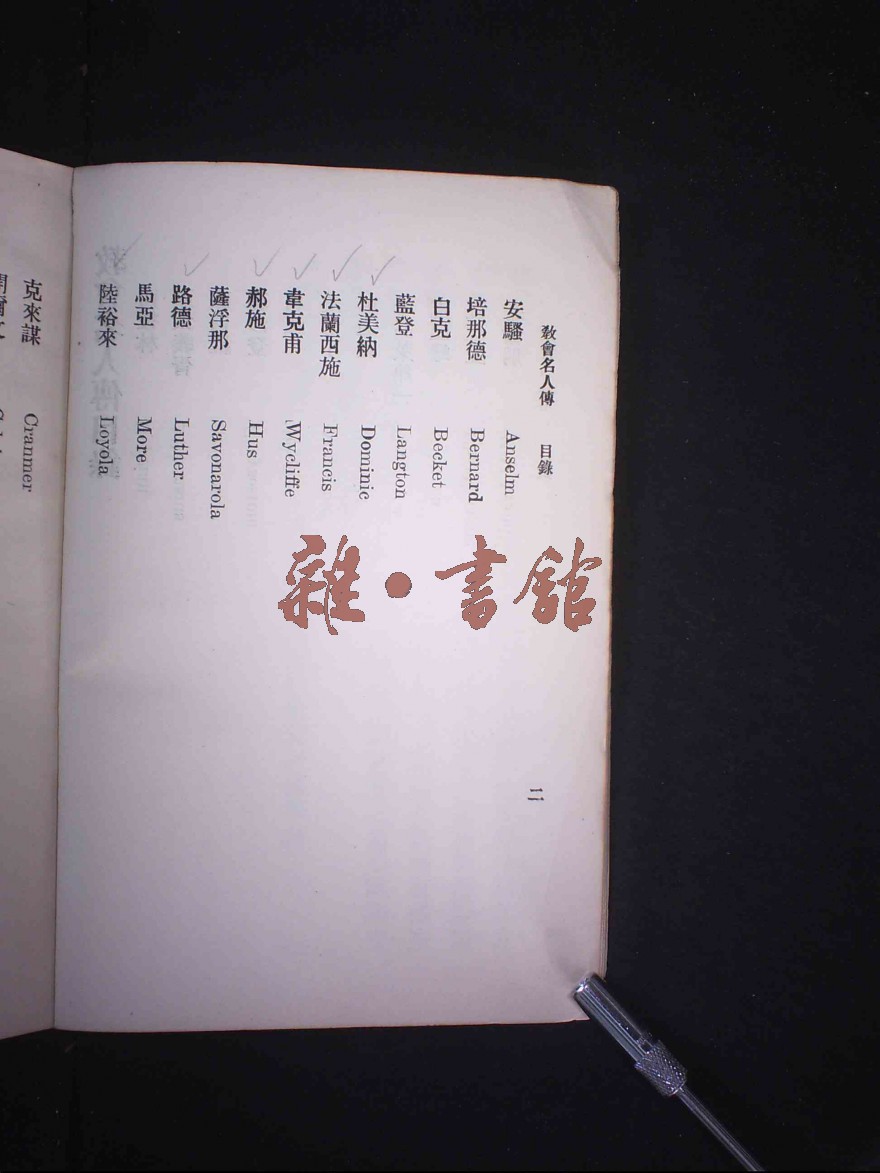 教會名人傳 目錄
安騷 Anselm
培那德 Bernard
白克 Becket
藍登 Langton
杜美納 Dominic
法蘭西施 Francis
韋克甫 Wycliffe
郝施 Hus
薩浮那 Savonarola
路德 Luther
馬亞 More
陸裕來 Loyola
二
克來謀 Cranmer
雜•書館